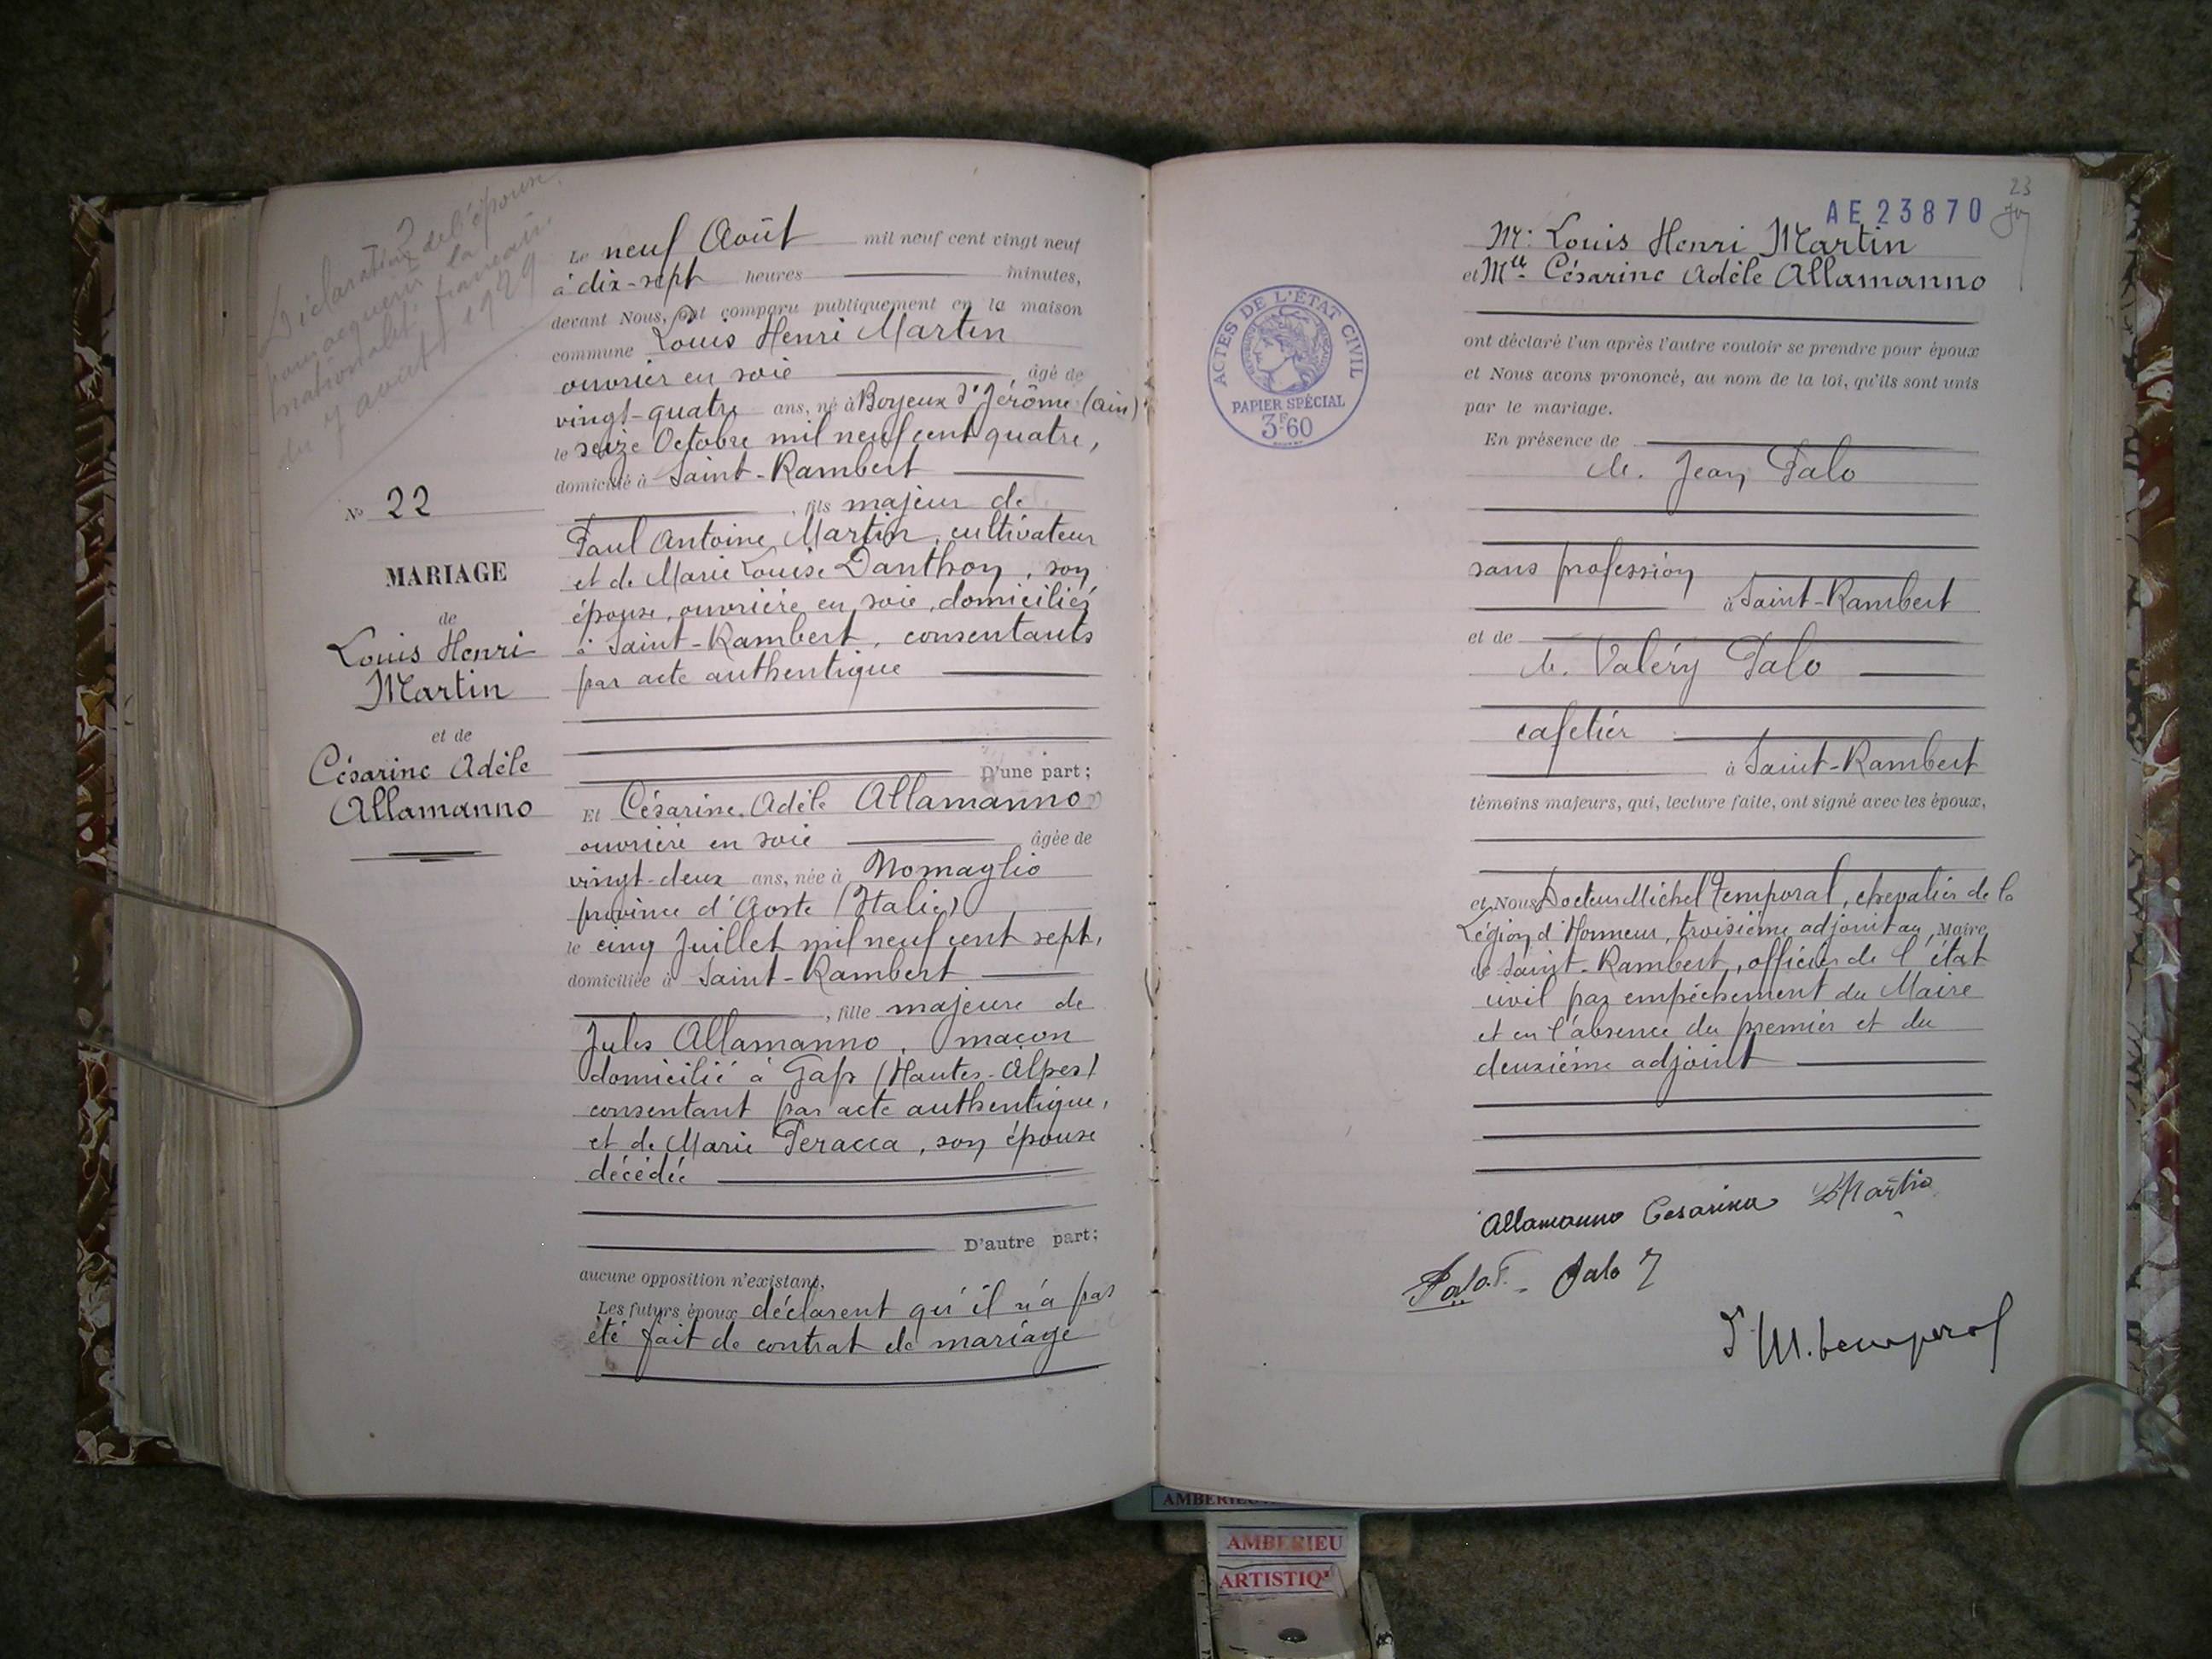 Déclaration de l'épouse
pour acquérir la
nationalité française
du 7 août 1929
Le neuf Août mil neuf cent vingt neuf
à dix-sept heures minutes,
devant Nous, ont comparu publiquement en la maison
commune Louis Henri Martin
ouvrier en soie âgé de
vingt-quatre ans, né à Boyeux St Jérôme (Ain)
le seize Octobre mil neuf cent quatre,
domicilié à Saint-Rambert
, fils majeur de
Paul Antoine Martin, cultivateur
et de Marie Louise Danthon, son
épouse, ouvrière en soie, domiciliés
à Saint-Rambert, consentants
par acte authentique
D'une part;
No 22
MARIAGE
de
Louis Henri
Martin
et de
Césarine Adèle
Allamanno
Et Césarine Adèle Allamanno
ouvrière en soie âgée de
vingt-deux ans, née à Nomaglio
province d'Aoste (Italie)
le cinq Juillet mil neuf cent sept,
domiciliée à Saint-Rambert
, fille majeure de
Jules Allamanno, maçon
domicilié à Gap (Hautes-Alpes)
consentant par acte authentique,
et de Marie Peracca, son épouse
décédée
D'autre part;
aucune opposition n'existant,
Les futurs époux déclarent qu'il n'a pas
été fait de contrat de mariage
AE 23870
23
Mr. Louis Henri Martin
et Mlle Césarine Adèle Allamanno
ont déclaré l'un après l'autre vouloir se prendre pour époux
et Nous avons prononcé, au nom de la loi, qu'ils sont unis
par le mariage.
En présence de
M. Jean Palo
sans profession
à Saint-Rambert
et de
M. Valéry Palo
cafetier
à Saint-Rambert
témoins majeurs, qui, lecture faite, ont signé avec les époux,
et Nous Docteur Michel Temporal, chevalier de la
Légion d'Honneur, troisième adjoint au Maire
de Saint-Rambert, officier de l'état
civil par empêchement du Maire
et en l'absence du premier et du
deuxième adjoint
Allamanno Cesarina L Martin
Palo Palo J
Dr M. Temporal
ACTES DE L'ÉTAT CIVIL
RÉPUBLIQUE FRANÇAISE
PAPIER SPÉCIAL
3F60
AMBERIEU
AMBERIEU
ARTISTIQ